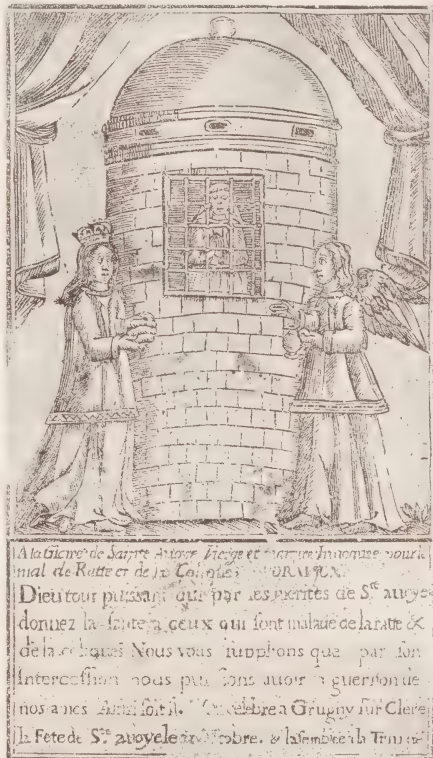 A la Gloire de Sainte Avoye Vierge et martire Invoquee pour le
mal de Ratte et de la Colique
Dieu tout puissant qui par les merites de S.te avoye
donnez la sante a ceux qui sont malade de la ratte &
de la coliques Nous vous supplions que par son
Intercession nous puissions avoir guerison de
nos ames soit il. celebre a Grugny sur Clere
la Fete de S.te avoye le bre. & lasemblée a la